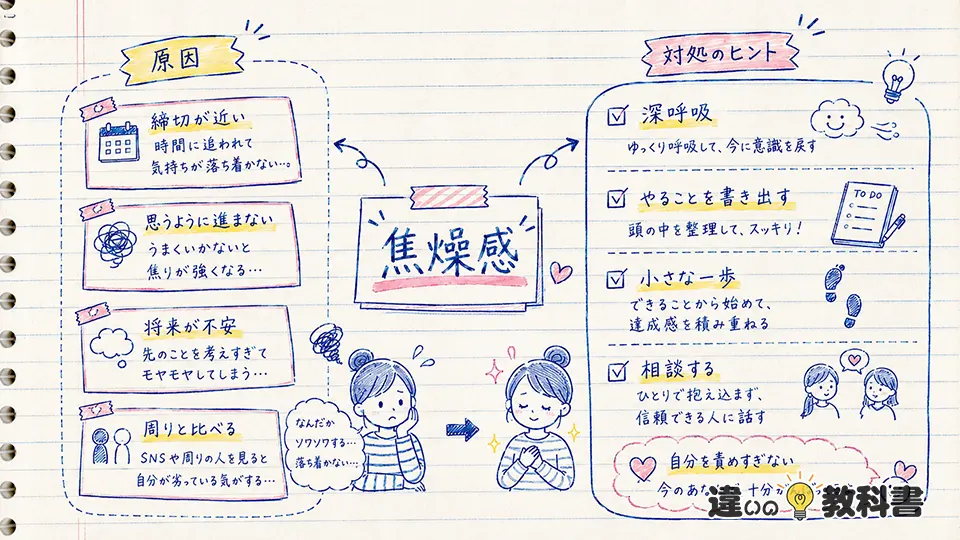 原因
締切が近い
時間に追われて
気持ちが落ち着かない…。
思うように進まない
うまくいかないと
焦りが強くなる…
将来が不安
先のことを考えすぎて
モヤモヤしてしまう…
周りと比べる
SNSや周りの人を見ると
自分が劣っている気がする…
焦燥感
なんだか
ソワソワする…
落ち着かない…
対処のヒント
深呼吸
ゆっくり呼吸して、今に意識を戻す
やることを書き出す
頭の中を整理して、スッキリ!
TO DO
小さな一歩
できることから始めて、
達成感を積み重ねる
相談する
ひとりで抱え込まず、
信頼できる人に話す
自分を責めすぎない
今のあな 十分
違いの教科書